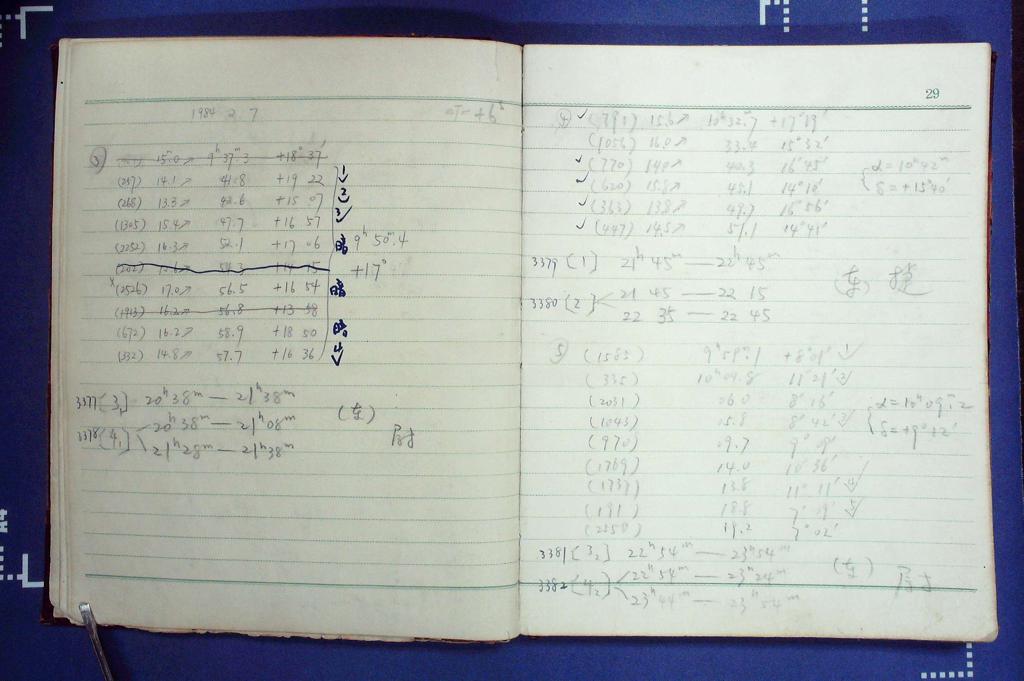 1984 2. 7
+6ʰ
③ 15ᵐ.0↗ 9ʰ 37ᵐ.3 +18° 37′
(257) 14.1↗ 41.8 +19 22 1
(268) 13.3↗ 42.6 +15 07 2
(1305) 15.4↗ 47.7 +16 57 3
(2252) 16.3↗ 52.1 +17 06 暗 9ʰ 50ᵐ.4
(202) 54.3 +14 15 +17°
(2526) 17.0↗ 56.5 +16 54 暗
(1913) 16.2↗ 56.8 +13 58
(672) 16.2↗ 58.9 +18 50 暗
(332) 14.8↗ 57.7 +16 36 4
3377 [3₁] 20ʰ38ᵐ — 21ʰ38ᵐ (东)
3378 [4₁] 20ʰ38ᵐ — 21ʰ08ᵐ
21ʰ28ᵐ — 21ʰ38ᵐ
29
④ ✓ (791) 15.6↗ 10ʰ32ᵐ.7 +17°19′
(1056) 16.0↗ 33.4 15°32′
✓ (770) 14.0↗ 40.3 16°45′ α=10ʰ42ᵐ
✓ (620) 15.8↗ 45.1 14°18′ δ=+15°40′
✓ (363) 13.8↗ 49.7 16°56′
✓ (447) 14.5↗ 51.1 14°41′
3379 [1] 21ʰ45ᵐ — 22ʰ45ᵐ (东)
3380 [2] 21 45 — 22 15
22 35 — 22 45
⑤ (1585) 9ʰ59ᵐ.1 +8°01′ 1
(335) 10ʰ04.8 11°21′ 2
(2031) 06.0 8°16′ α=10ʰ09ᵐ.2
(1043) 05.8 8°42′ 3 δ=+9°12′
(970) 09.7 9°09′
(1769) 14.0 10°36′
(1737) 13.8 11°11′ 4
(191) 18.8 7°19′ 5
(2558) 19.2 7°02′
3381 [3₂] 22ʰ54ᵐ — 23ʰ54ᵐ (东)
3382 [4₂] 22ʰ54ᵐ — 23ʰ24ᵐ
23ʰ44ᵐ — 23ʰ54ᵐ